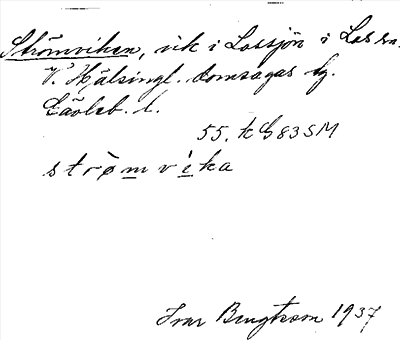 Strömviken, vik i Lossjön i Los sn.
V. Hälsingl. domsagas tg.
Gävleb. l.
55. k G 83 SM
strömvika
Ivar Bengtsson 1937